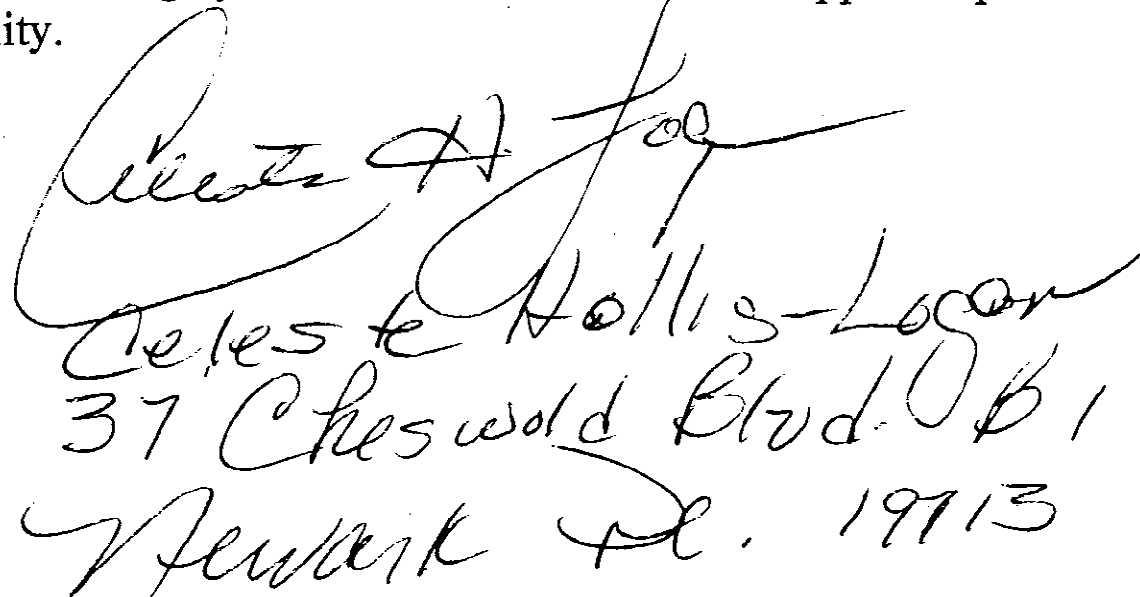 ity.
Celeste H. Log
Celeste Hollis-Logan
37 Cheswold Blvd. B1
Newark De. 19713